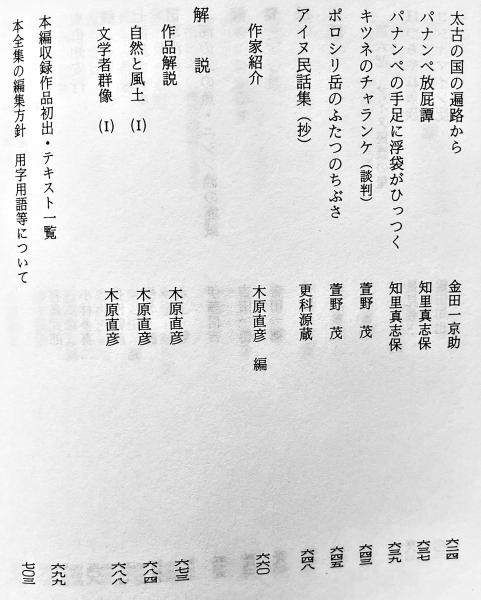 太古の国の遍路から 金田一京助 六二四
パナンペ放屁譚 知里真志保 六三七
パナンペの手足に浮袋がひっつく 知里真志保 六三九
キツネのチャランケ（談判） 萱野 茂 六四三
ポロシリ岳のふたつのちぶさ 萱野 茂 六四五
アイヌ民話集（抄） 更科源蔵 六四八
作家紹介 木原直彦 編 六六〇
解説
作品解説 木原直彦 六七三
自然と風土 (I) 木原直彦 六八四
文学者群像 (I) 木原直彦 六八八
本編収録作品初出・テキスト一覧 六九九
本全集の編集方針 用字用語等について 七〇三